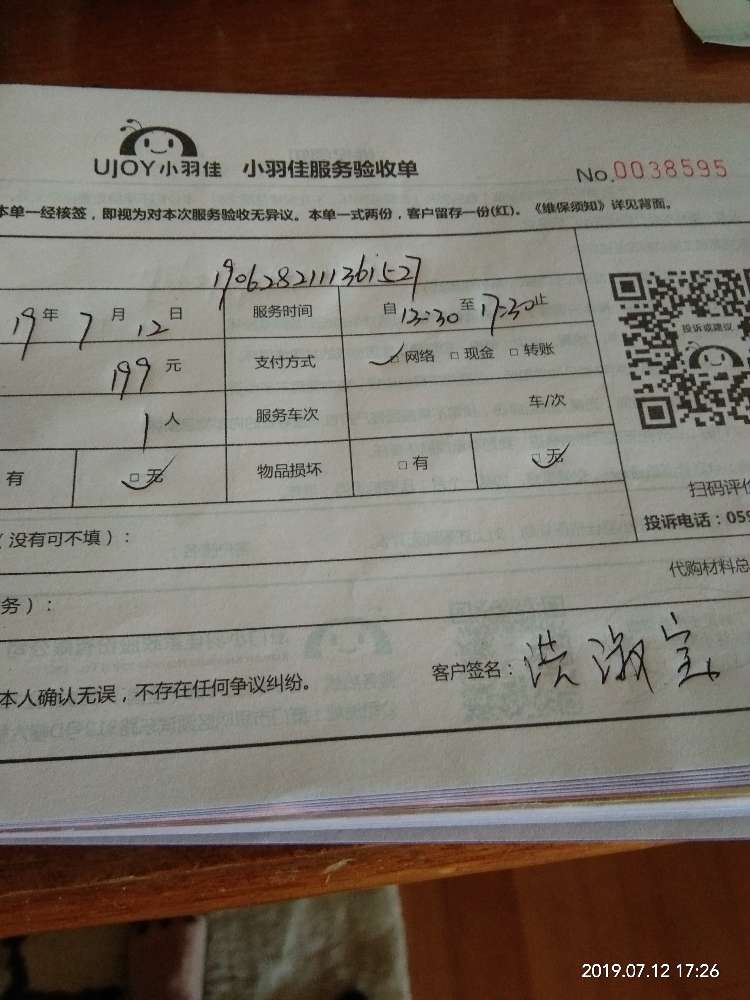 UJOY小羽佳 小羽佳服务验收单 No.0038595
本单一经核签，即视为对本次服务验收无异议。本单一式两份，客户留存一份(红)。《维保须知》详见背面。
1906282111361527
19年7月12日 服务时间 自13:30至17:30止
199元 支付方式 ✓□网络 □现金 □转账
投诉或建议
1人 服务车次 车/次
有 □无✓ 物品损坏 □有 □无✓
扫码评价
（没有可不填）：
投诉电话：059
代购材料总
务）：
本人确认无误，不存在任何争议纠纷。 客户签名：洪淑宝
2019.07.12 17:26